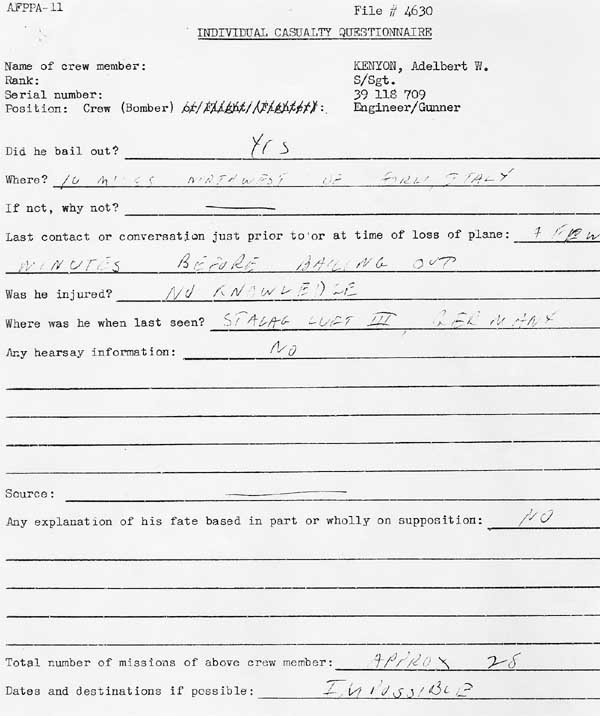 AFPPA-11 File # 4630
INDIVIDUAL CASUALTY QUESTIONNAIRE
Name of crew member: KENYON, Adelbert W.
Rank: S/Sgt.
Serial number: 39 118 709
Position: Crew (Bomber) or/Flight/(Fighter): Engineer/Gunner
Did he bail out? Yes
Where? 10 MILES NORTHWEST OF FORLI, ITALY
If not, why not?
Last contact or conversation just prior to or at time of loss of plane: A FEW
MINUTES BEFORE BAILING OUT
Was he injured? NO KNOWLEDGE
Where was he when last seen? STALAG LUFT III, GERMANY
Any hearsay information: NO
Source:
Any explanation of his fate based in part or wholly on supposition: NO
Total number of missions of above crew member: APPROX 28
Dates and destinations if possible: IMPOSSIBLE